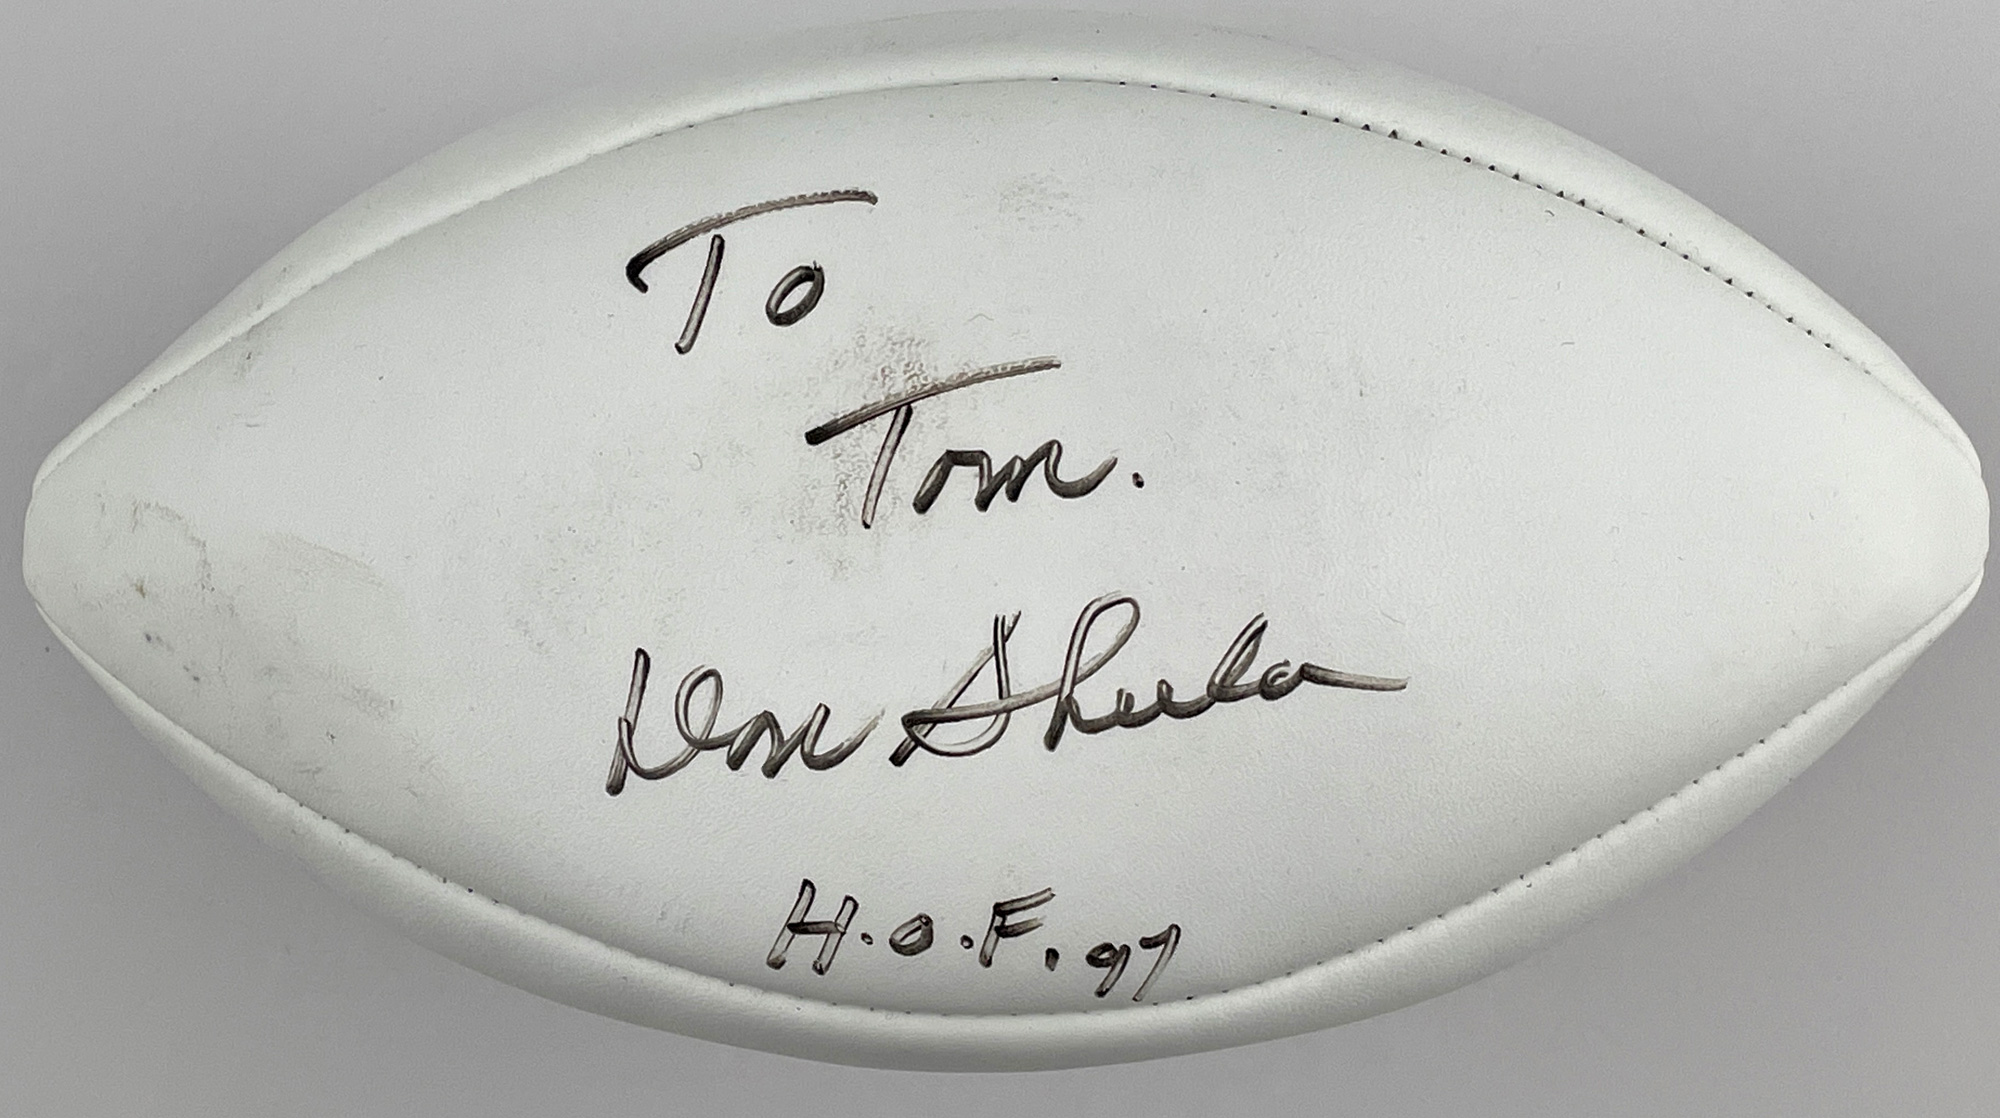 To
Tom.
Don Shula
H.O.F. 97